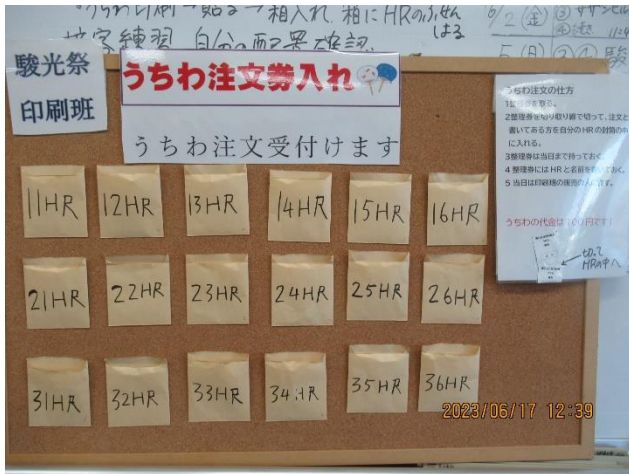 うちわ印刷→貼る→箱入れ 箱にHRのふせん
はる
接客練習 自分の配置確認
6/2(金)
駿光祭
印刷班
うちわ注文券入れ
うちわ注文受付けます
うちわ注文の仕方
1整理券を取る。
2整理券を切り取り線で切って、注文と
書いてある方を自分のHRの封筒の中
に入れる。
3整理券は当日まで持っておく。
4整理券にはHRと名前を書いておく。
5当日は印刷班の販売の人に渡す。
うちわの代金は100円です
切って
HRの中へ
11HR 12HR 13HR 14HR 15HR 16HR
21HR 22HR 23HR 24HR 25HR 26HR
31HR 32HR 33HR 34HR 35HR 36HR
2023/06/17 12:39